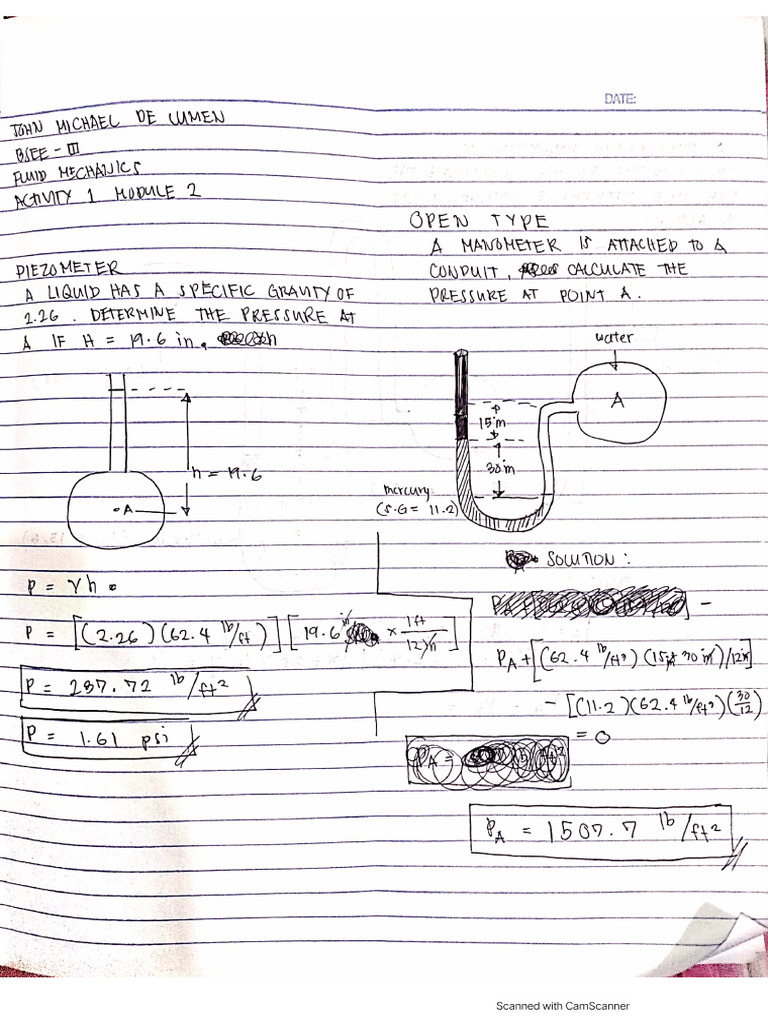 DATE:
JOHN MICHAEL DE LUMEN
BSEE - III
FLUID MECHANICS
ACTIVITY 1 MODULE 2
PIEZOMETER
A LIQUID HAS A SPECIFIC GRAVITY OF
2.26. DETERMINE THE PRESSURE AT
A IF H = 19.6 in.
h = 19.6
A
P = γh
P = [(2.26)(62.4 lb/ft)][19.6 in × 1ft/12in]
P = 237.72 lb/ft²
P = 1.61 psi
OPEN TYPE
A MANOMETER IS ATTACHED TO A
CONDUIT, CALCULATE THE
PRESSURE AT POINT A.
water
A
15in
30in
mercury
(S.G = 11.2)
SOLUTION:
PA + [(62.4 lb/ft³)(15in + 30 in)/12in]
- [(11.2)(62.4 lb/ft³)(30/12)
= 0
PA = 1507.7 lb/ft²
Scanned with CamScanner